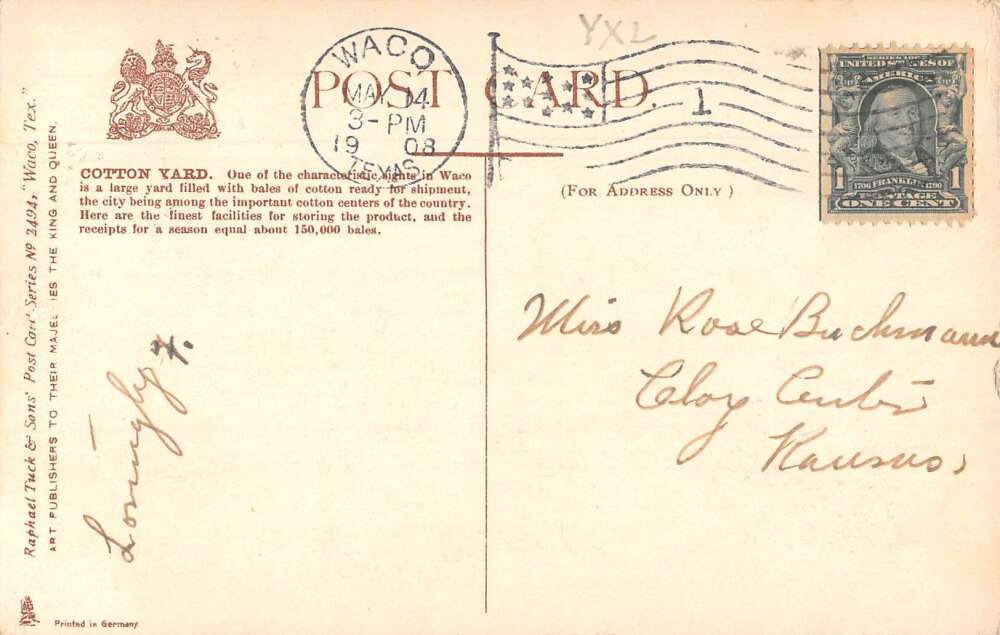 YXL
WACO
MAY 14
3-PM
1908
TEXAS
POST CARD.
1
SERIES 1902
UNITED STATES OF
AMERICA
1 1706 FRANKLIN 1790 1
POSTAGE
ONE CENT
COTTON YARD. One of the characteristic sights in Waco
is a large yard filled with bales of cotton ready for shipment,
the city being among the important cotton centers of the country.
Here are the finest facilities for storing the product, and the
receipts for a season equal about 150,000 bales.
(FOR ADDRESS ONLY)
Miss Rose Buchmann
Clay Center
Kansas,
Lovingly F.
Raphael Tuck & Sons' Post Card Series Nº 2494, "Waco, Tex."
ART PUBLISHERS TO THEIR MAJESTIES THE KING AND QUEEN.
Printed in Germany